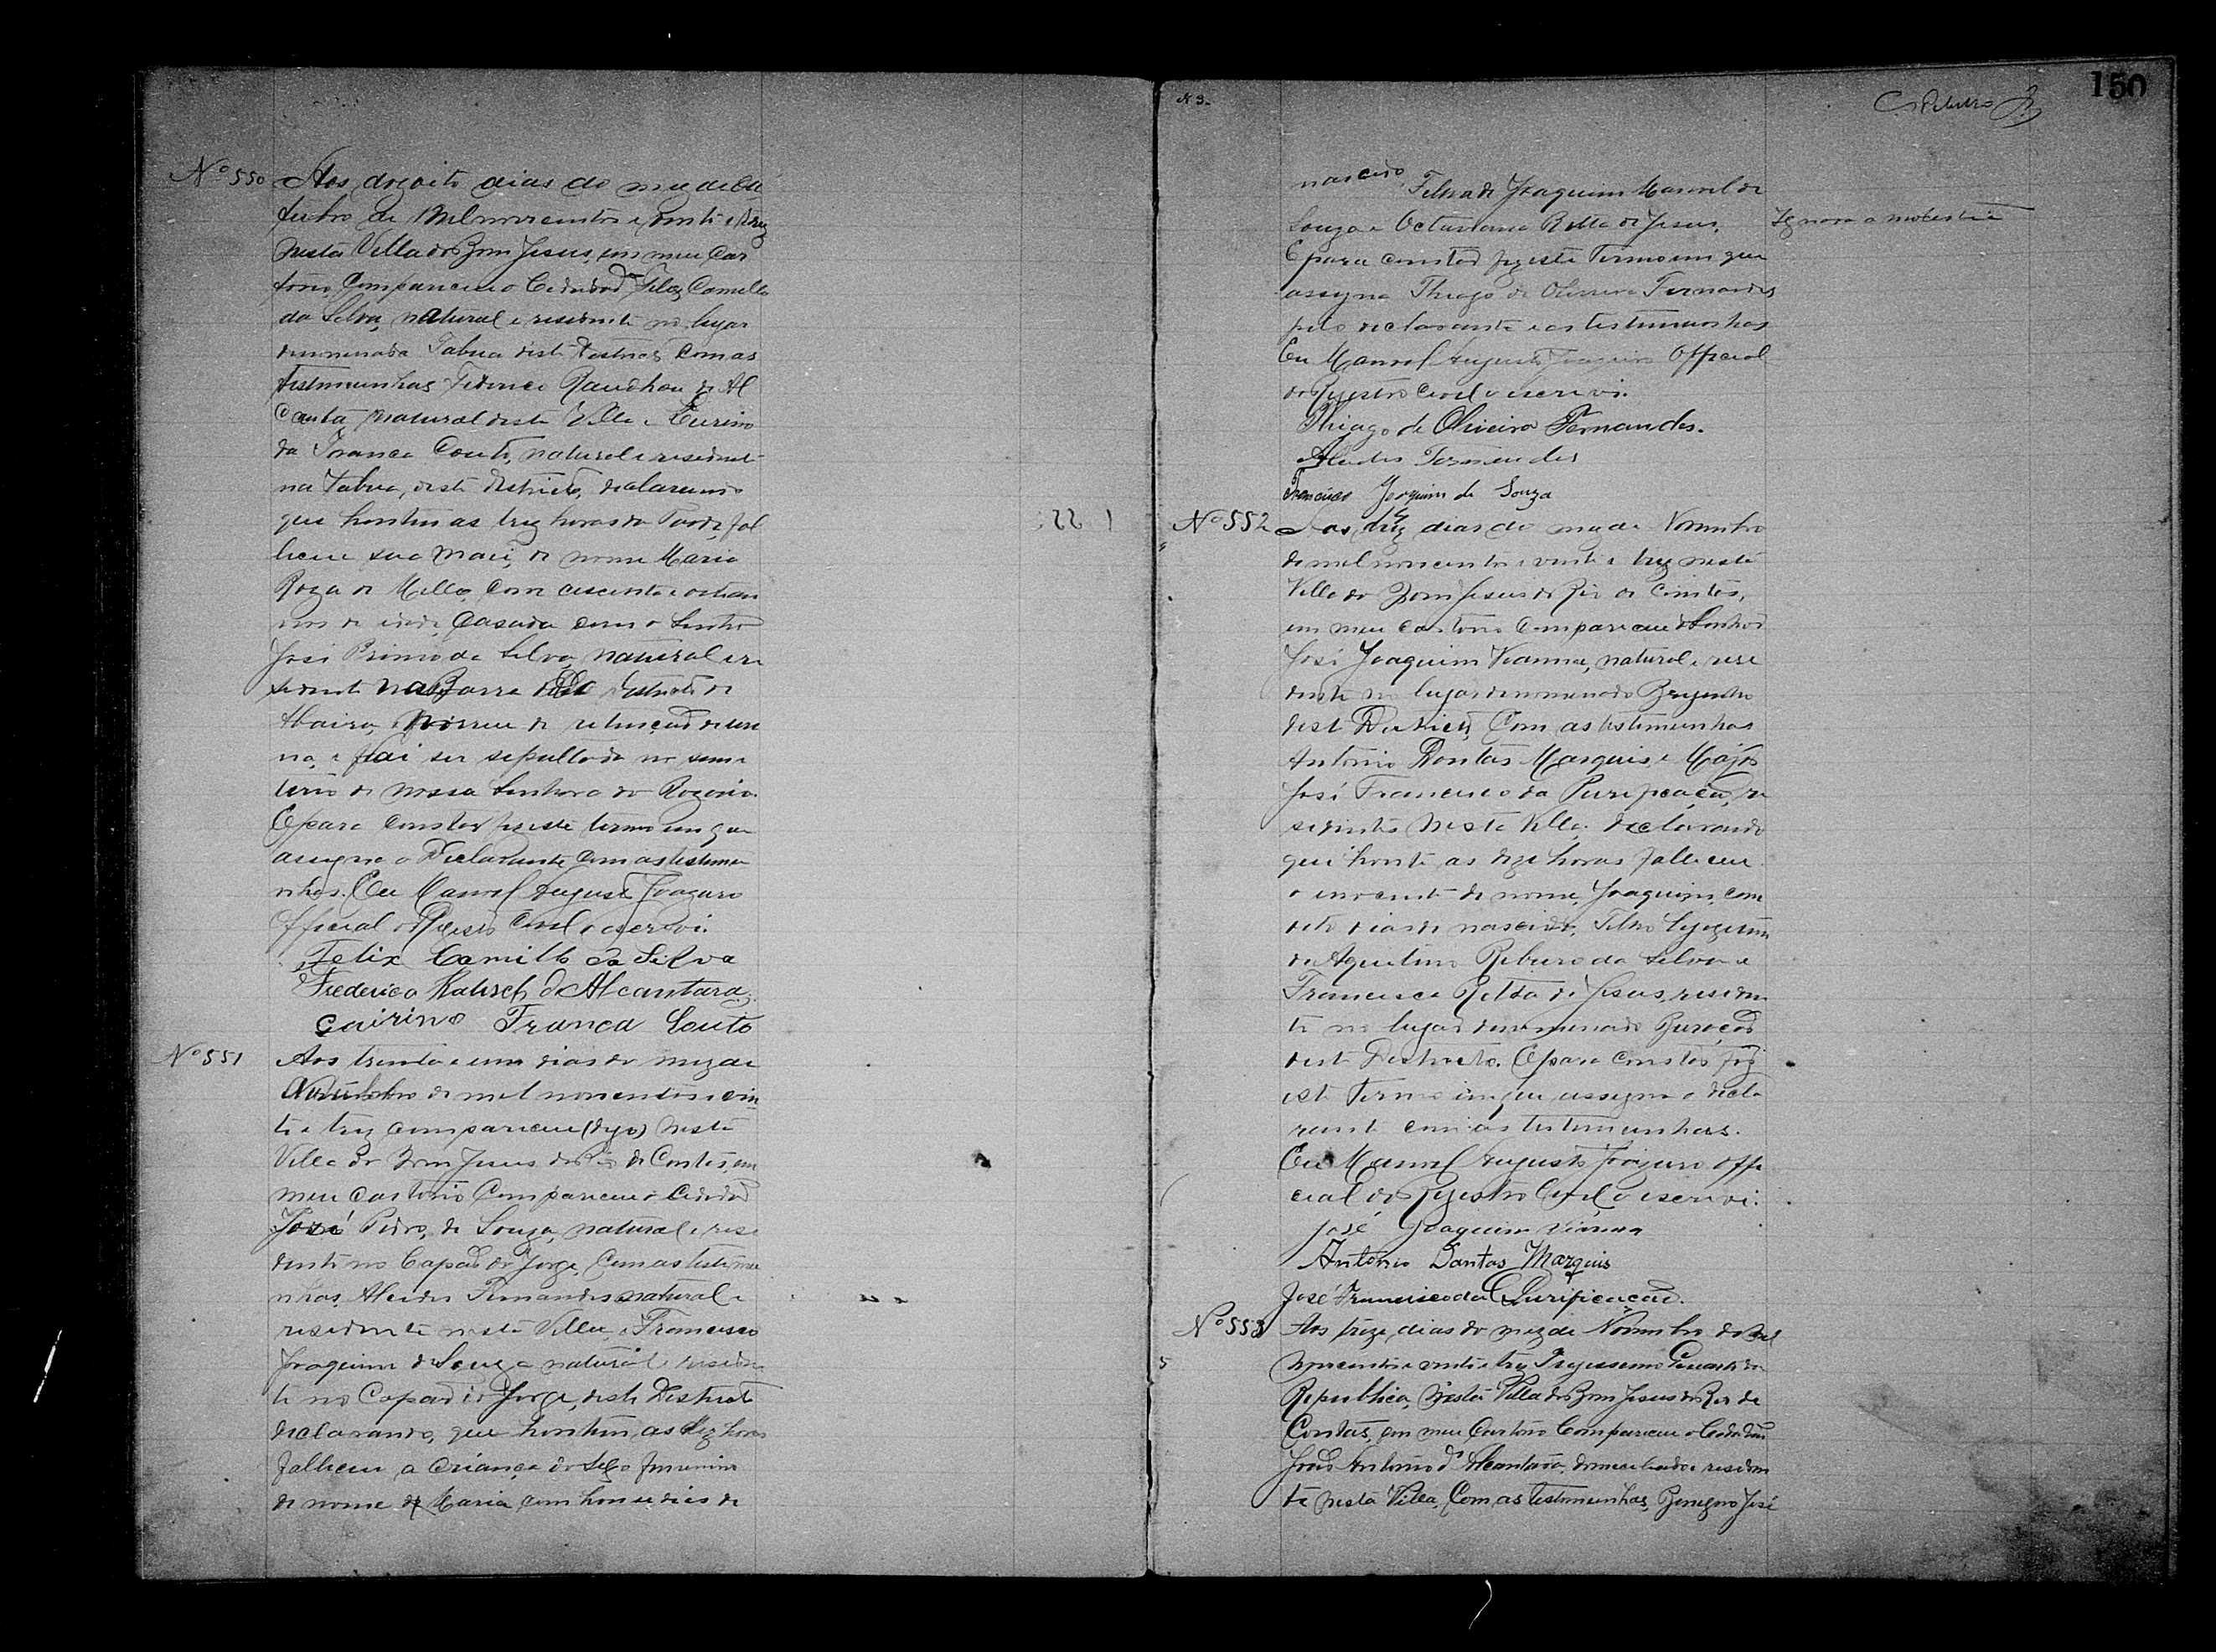 150
N 3.
Nº 550 Aos dezoito dias do mez de Ou
tubro de Mil novecentos e vinte e trez
nesta Villa do Bom Jesus, em meu Car
torio, Compareceu o Cidadão Felix Camillo
da Silva, natural e residente no lugar
denominada Tabua deste Destricto, com as
testemunhas Frederico de Al
natural desta Villa e Eurino
da França Couto, natural e residente
na Tabua, deste districto, declarando
que hontem as trez horas da Tarde, fal
leceu sua Mai, de nome Maria
Roza de Mello, com cescenta e oito an
nos de idade, Casada com o Senhor
José Primo da Silva, natural e re
sidente na Barra Destricto de
Abaira, Morreu de retenção de uri
na, e foi ser sepultada no semi
terio de Nossa Senhora do Rozario.
E para constar fiz este termo em que
assigna o Declarante com as testemu
nhas. Eu Manoel Augusto
Official do Registro Civil o escrevi.
Felix Camillo da Silva
Frederico de Alcantara
Cuirino França Couto
Nº 551 Aos trinta e um dias do mez de
de mil novecentos e vin
te e trez compareceu (digo) nesta
Villa do Bom Jesus do Rio de Contas, em
meu Cartorio Compareceu o Cidadão
José Pedro de Souza, natural e resi
dente no Capão do Jorge, Com as testemu
nhas, Alcides Fernandes natural e
residente nesta Villa, e Francisco
Joaquim de Souza natural e residen
te no Capão do Jorge, deste Destricto
declarando, que hontem, as dez horas
falleceu a Criança do Sexo feminino
de nome de Maria, com honze dias de
nascido, Filha de Joaquim Manoel de
Souza e Octaviana Ritta de Jesus. Ignora a molestia
E para constar fiz este Termo em que
assigna Thiago de Oliveira Fernandes
pelo declarante e as testemunhas
Eu Manoel Augusto Official
do Registro Civil o escrevi.
Thiago de Oliveira Fernandes.
Alcides Fernandes
Francisco Joaquim de Souza
Nº 552 Aos dez dias do mez de Novembro
de mil novecentos e vinte e trez nesta
Villa do Bom Jesus do Rio de Contas,
em meu Cartorio Compareceu o Senhor
José Joaquim Vianna, natural e resi
dente no lugar denominado
deste Destricto, Com as testemunhas
Antonio Dantas Marquis, e Major
José Francisco da Purificação, re
sidentes nesta Villa, declarando
que honte as doze horas falleceu
o inocente de nome, Joaquim, com
oito dias de nascido, Filho legitimo
de Aquilino Ribeiro da Silva e
Francisca Ritta de Jesus, residen
te no lugar denominado
deste Destricto. E para constar, fiz
este Termo em que assigna o decla
rante com as testemunhas.
Eu Manoel Augusto Offi
cial do Registro Civil o escrevi.
José Joaquim Vianna
Antonio Dantas Marquis
José Francisco da Purificação.
Nº 553 Aos treze dias do mez de Novembro de Mil
novecentos e vinte e trez Trigessimo da
Republica, nesta Villa do Bom Jesus do Rio de
Contas, em meu Cartorio Compareceu o Cidadão
João Antonio d'Alcantara, domiciliado e residen
te nesta Villa, Com as testemunhas, Benigno José